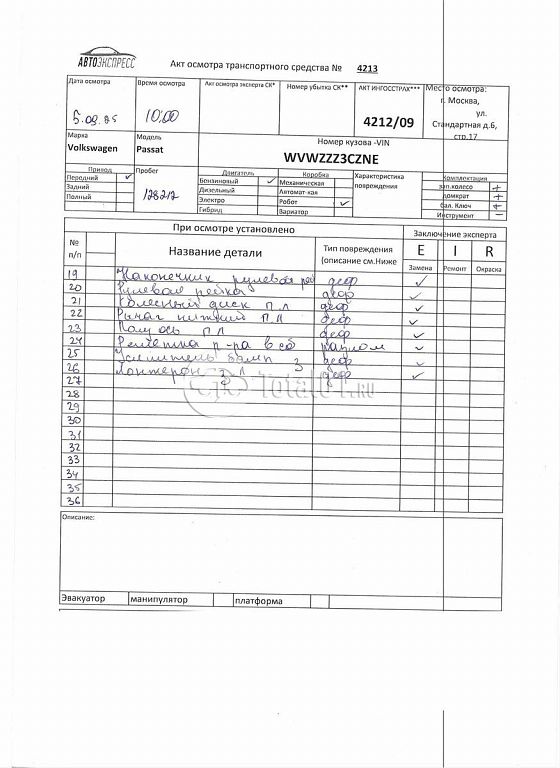 АВТОЭКСПРЕСС
Акт осмотра транспортного средства № 4213
Дата осмотра
5.09.
Время осмотра
10:00
Акт осмотра эксперта СК*
Номер убытка СК**
АКТ ИНГОССТРАХ***
4212/09
Место осмотра:
г. Москва,
ул.
Стандартная д.6,
стр.17
Марка
Volkswagen
Модель
Passat
Номер кузова -VIN
WVWZZZ3CZNE
Привод
Передний ✓
Задний
Полный
Пробег
128212
Двигатель
Бензиновый ✓
Дизельный
Электро
Гибрид
Коробка
Механическая
Автомат-кая
Робот ✓
Вариатор
Характеристика
повреждения
Комплектация
зап.колесо +
домкрат +
бал. Ключ +
Инструмент –
При осмотре установлено
Заключение эксперта
№
п/п
Название детали
Тип повреждения
(описание см.Ниже
E I R
Замена Ремонт Окраска
19 Наконечник рулевой деф ✓
20 Рулевая рейка деф ✓
21 Колесный диск п л деф ✓
22 Рычаг нижний п л деф ✓
23 Полуось п л деф ✓
24 Решетка р-ра в сб разлом ✓
25 Усилитель бамп з деф ✓
26 Лонжерон з л деф ✓
27
28
29
30
31
32
33
34
35
36
Total01.ru
Описание:
Эвакуатор
манипулятор
платформа